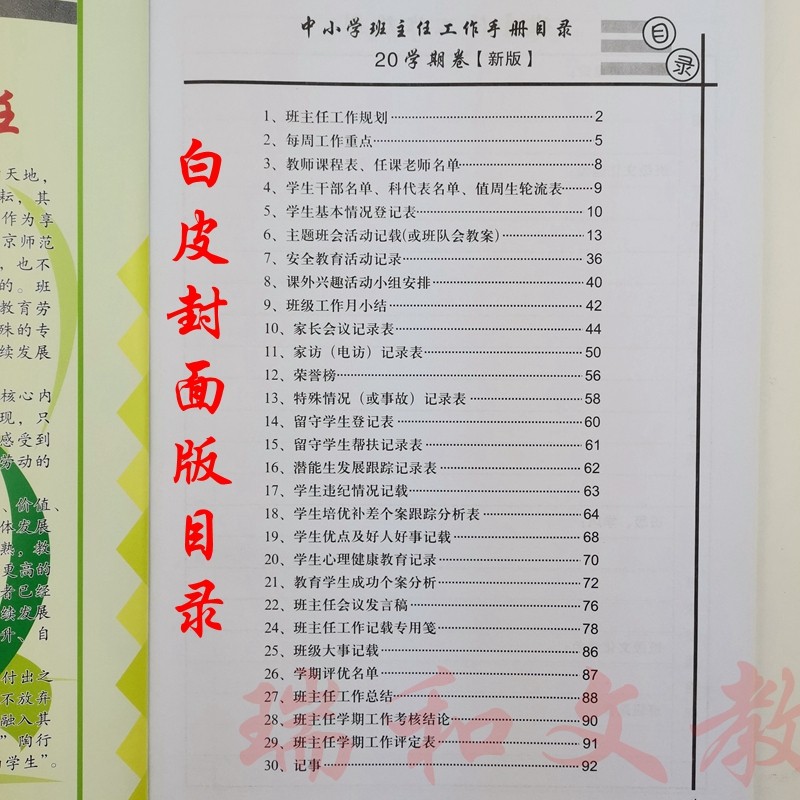 中小学班主任工作手册目录
20 学期卷【新版】
目录
1、班主任工作规划 2
2、每周工作重点 5
3、教师课程表、任课老师名单 8
4、学生干部名单、科代表名单、值周生轮流表 9
5、学生基本情况登记表 10
6、主题班会活动记载(或班队会教案) 13
7、安全教育活动记录 36
8、课外兴趣活动小组安排 40
9、班级工作月小结 42
10、家长会议记录表 44
11、家访（电访）记录表 50
12、荣誉榜 56
13、特殊情况（或事故）记录表 58
14、留守学生登记表 60
15、留守学生帮扶记录表 61
16、潜能生发展跟踪记录表 62
17、学生违纪情况记载 63
18、学生培优补差个案跟踪分析表 64
19、学生优点及好人好事记载 68
20、学生心理健康教育记录 70
21、教育学生成功个案分析 72
22、班主任会议发言稿 76
24、班主任工作记载专用笺 78
25、班级大事记载 86
26、学期评优名单 87
27、班主任工作总结 88
28、班主任学期工作考核结论 90
29、班主任学期工作评定表 91
30、记事 92
白皮封面版目录
瑞和文教
天地，
耘，其
作为享
京师范
，也不
的。班
教育劳
殊的专
续发展
核心内
现，只
感受到
劳动的
、价值、
体发展
熟，教
更高的
者已经
续发展
升、自
付出之
不放弃
融入其
”陶行
学生”。